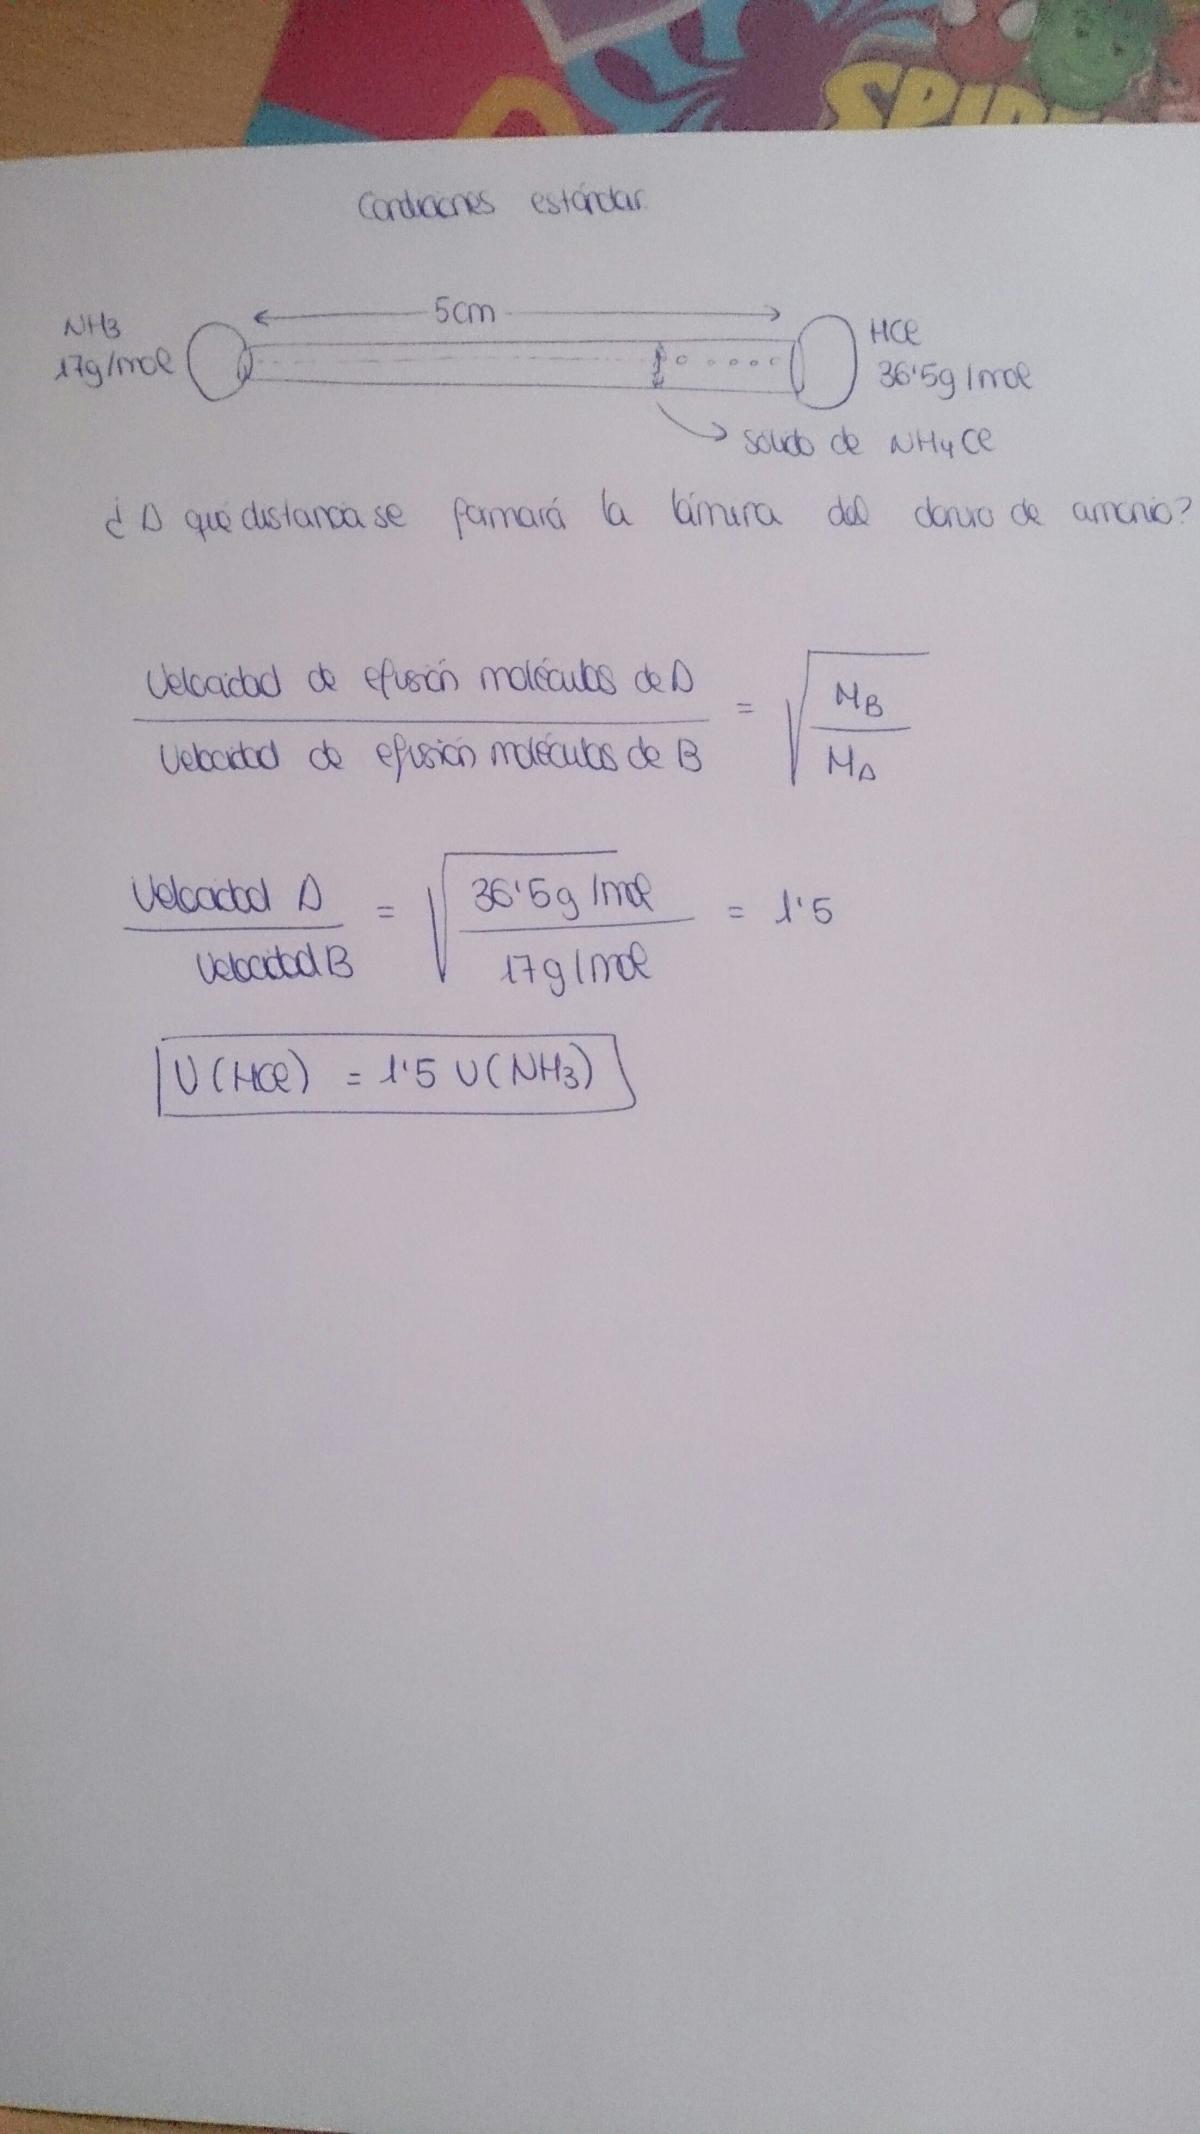 SPIDE
Condiciones estándar
5cm
NH3
17g/mol
HCl
36'5g/mol
sólido de NH4Cl
¿A qué distancia se formará la lámina del cloruro de amonio?
Velocidad de efusión moléculas de A
Velocidad de efusión moléculas de B
= √ MB
MA
Velocidad A
Velocidad B
= √ 36'5g/mol
17g/mol
= 1'5
V(HCl) = 1'5 V(NH3)